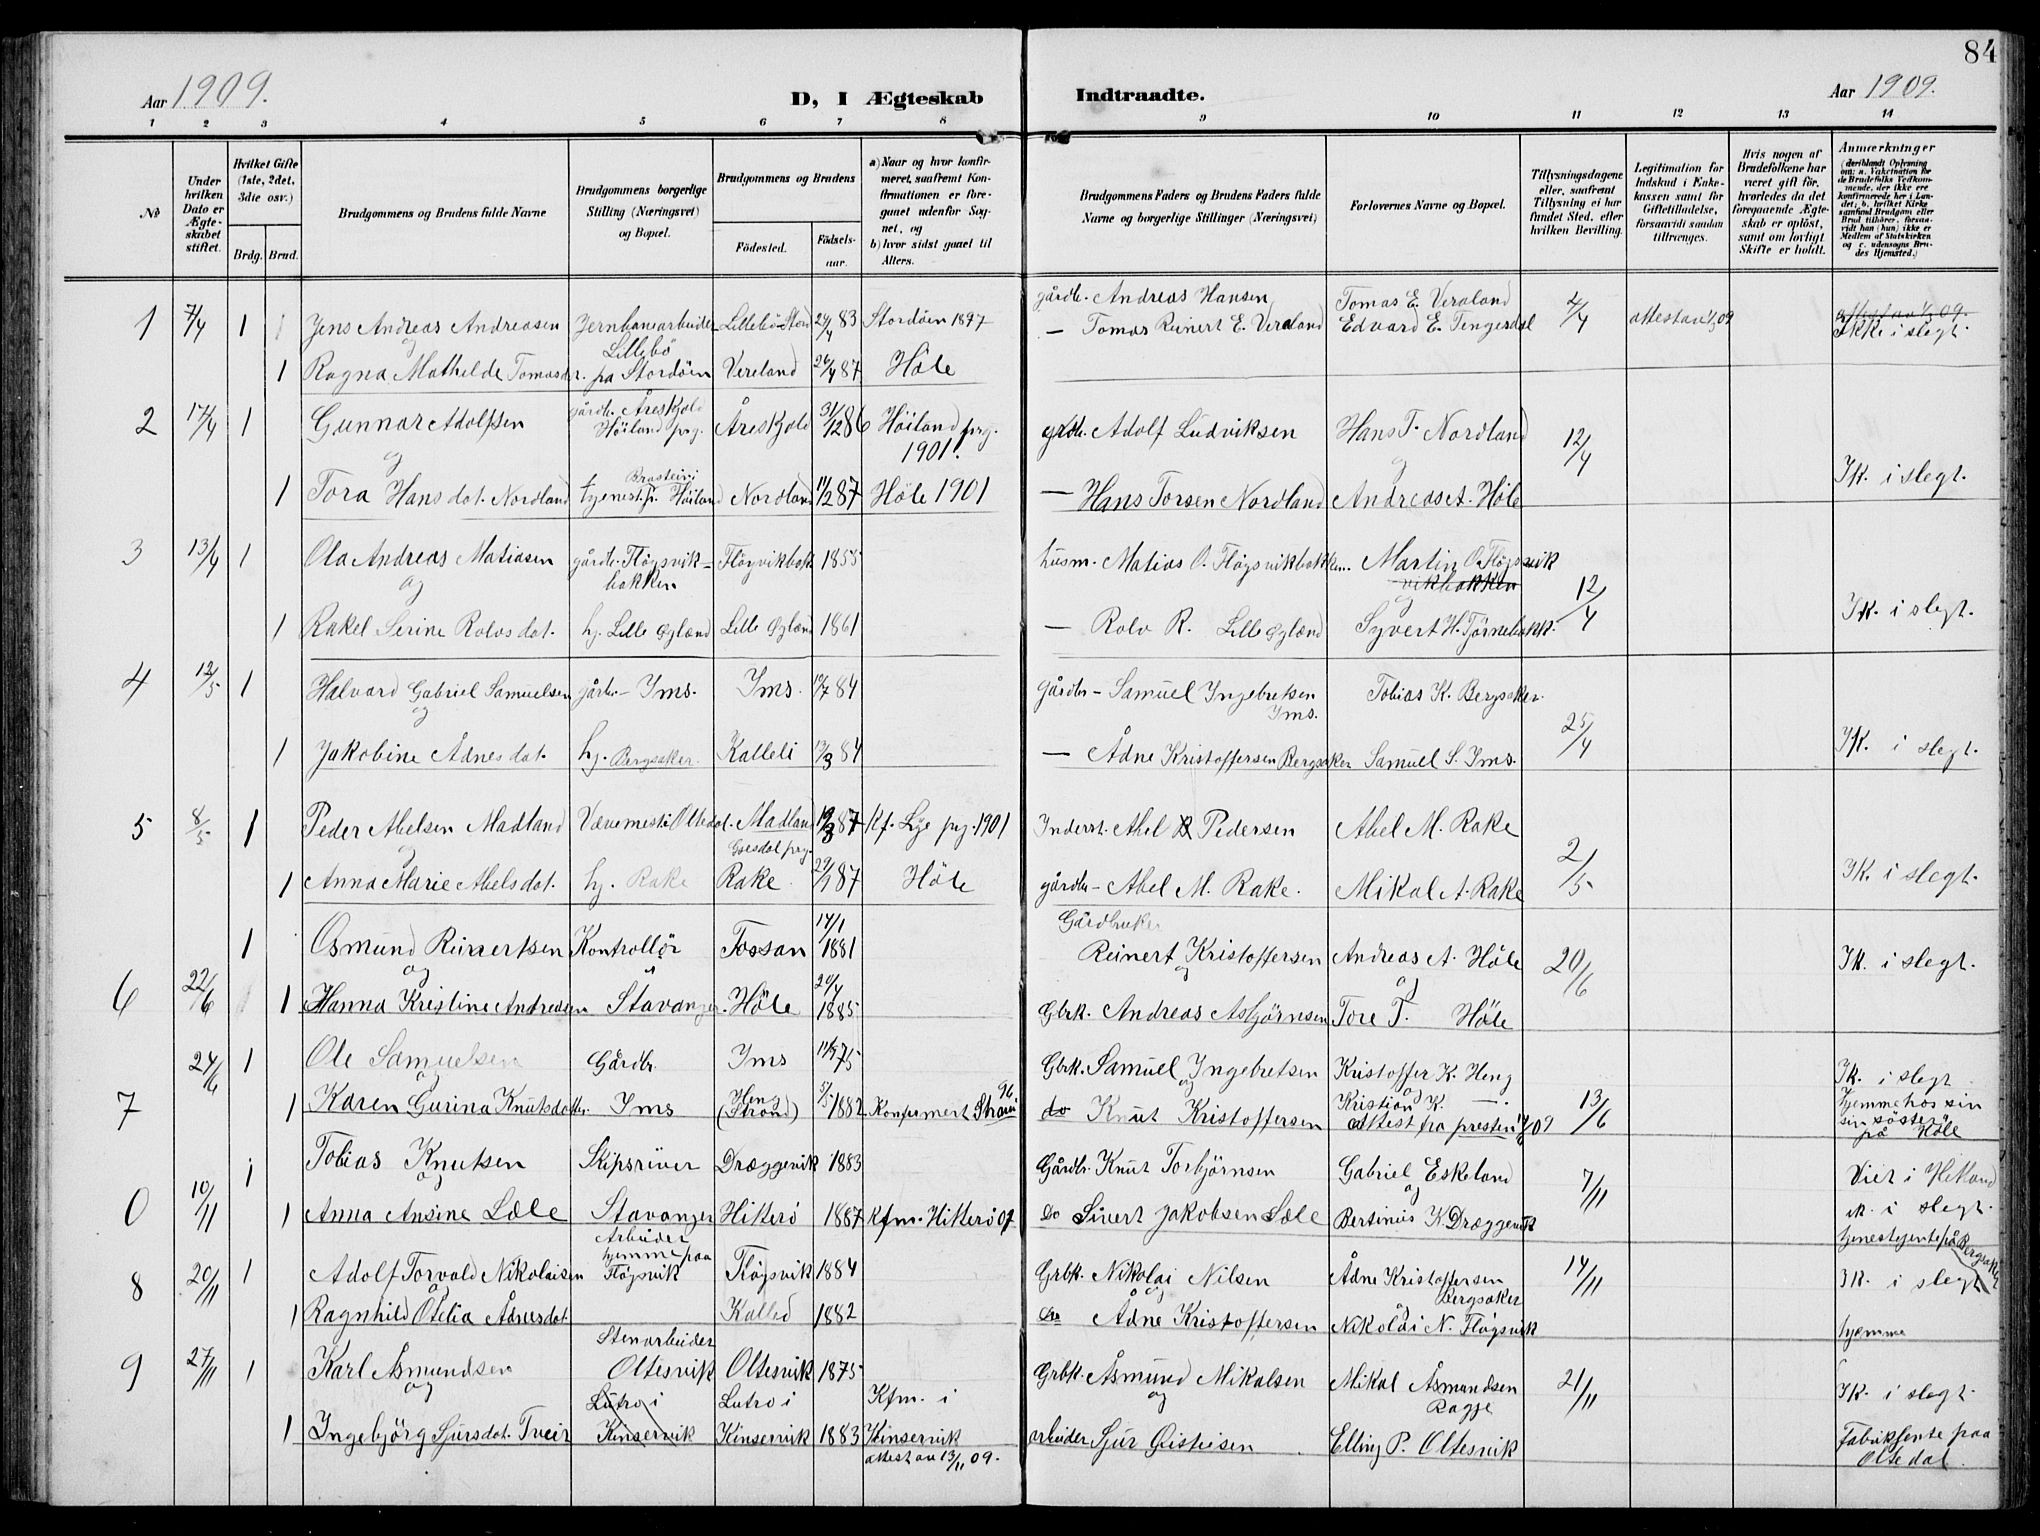 84
Aar 1909.
D, I Ægteskab Indtraadte.
Aar 1909.
1 2 3 4 5 6 7 8 9 10 11 12 13 14
No
Under hvilken Dato er Ægteskabet stiftet.
Hvilket Gifte (1ste, 2det, 3die osv.)
Brdg. Brud.
Brudgommens og Brudens fulde Navne
Brudgommens borgerlige Stilling (Næringsvei) og Bopæl.
Brudgommens og Brudens
Fødested.
Fødselsaar.
a) Naar og hvor konfirmeret, saafremt Konfirmationen er foregaaet udenfor Sognet, og
b) hvor sidst gaaet til Alters.
Brudgommens Faders og Brudens Faders fulde Navne og borgerlige Stillinger (Næringsvei)
Forlovernes Navne og Bopæl.
Tillysningsdagene eller, saafremt Tillysning ei har fundet Sted, efter hvilken Bevilling.
Legitimation for Indskud i Enkekassen samt for Giftetilladelse, forsaavidt saadan tiltrænges.
Hvis nogen af Brudefolkene har været gift før, hvorledes da det foregaaende Ægteskab er opløst, samt om lovligt Skifte er holdt.
Anmærkninger
(deriblandt Oplysning om: a. Vakcination for de Brudefolks Vedkommende, der ikke ere konfirmerede her i Landet; b. hvilket Kirkesamfund Brudgom eller Brud tilhører, forsaavidt han (hun) ikke er Medlem af Statskirken og c. udensogns Brudes Hjemsted.)
1 7/4 1 Jens Andreas Andreasen Jernbanearbeider Lillebø Stord 29/4 83 Stordøen 1897 gårdb. Andreas Hansen Tomas E. Veraland 4/4 attest av 1/3 09
og Lillebø — Tomas Reinert E. Veraland Edvard E. Tengesdal Ikke i slegt.
1 Ragna Mathilde Tomasdr. på Stordøen Vereland 26/4 87 Höle
2 17/4 1 Gunnar Adolfsen gårdb. Åreskjold Höiland prg. Åreskjold 31/12 86 Höiland prg. 1901. grdb. Adolf Ludviksen Hans T. Nordland 12/4
og
1 Tora Hansdat. Nordland tjenest. Höiland Nordland 11/2 87 Höle 1901 — Hans Torsen Nordland Andreas A. Höle Ik. i slegt.
3 13/4 1 Ola Andreas Matiasen gårdb. Fløgsvik-bakken Fløgvikbak 1855 husm. Matias O. Fløgsvikbakken. Martin O. Fløgsvik
og vikbakken 12/4
1 Rakel Serine Rolvsdat. hj. Lille Øglænd Lille Øglænd 1861 — Rolv R. Lille Øglænd Syvert H. Tjörnebakk. Ik. i slegt.
4 12/5 1 Halvard Gabriel Samuelsen gårbr— Ims. Ims. 10/7 84 Gårdbr— Samuel Ingebretsen Ims. Tobias K. Bergsaker.
og 25/4
1 Jakobine Ådnesdat. hj. Bergsaker. Kalleli 13/3 84 — Ådne Kristoffersen Bergsaker Samuel S. Ims. Ik. i slegt.
5 8/5 1 Peder Abelsen Madland Vævemest. Oltedal. Madland Gjesdal prg. 19/3 87 Kf. Lye prg. 1901 Inderst. Abel Pedersen Abel M. Rake
og 2/5
1 Anna Marie Abelsdat. hj. Rake Rake 29/1 87 Höle gårdbr— Abel M. Rake. Mikal A. Rake Ik. i slegt.
6 22/6 1 Osmund Reinertsen Kontrollør Fossan 14/1 1881 Gårdbruker Reinert Kristoffersen Andreas A. Höle 20/6 Ik. i slegt.
og i og og
1 Hanna Kristine Andreasen Stavanger. Höle 20/4 1885 Gbrk. Andreas Asbjørnsen Tore T. Höle
7 24/6 1 Ole Samuelsen Gårdbr. Ims 11/9 75 Gbrk. Samuel Ingebretsen Kristoffer K. Heng Ik. i slegt
og og og
1 Karen Gurina Knutsdatter. Ims Heng (Strand) 5/5 1882 Konfirmert Strand 96 do Knut Kristoffersen Kristian K. — 13/6 hjemme hos sin
attest fra presten 09 sin søster på Höle
0 10/11 1 Tobias Knutsen Skipsriver Dræggevik 1883 Gårdbr. Knut Torbjörnsen Gabriel Eskeland 7/11 Viet i Hetland
og og
1 Anna Ansine Læle Stavanger Hitterö 1887 Kfm. Hitterö 07 Do Sivert Jakobsen Læle Bertinius K Dræggevik ik. i slegt.
8 20/11 1 Adolf Torvald Nikolaisen Arbeider hjemme paa Fløgsvik Fløgsvik 1884 Grbk. Nikolai Nilsen Ådne Kristoffersen Bergsaker 14/11 tjenestjente på Bergsaker
og og og Ik. i slegt
1 Ragnhild Otelia Ådnesdat. Kalled 1882 do Ådne Kristoffersen Nikolai N. Fløgsvik hjemme
9 27/11 1 Karl Åsmundsen Stenarbeider Oltesvik Oltesvik 1875 Grbk. Åsmund Mikalsen Mikal Åsmundsen Ragje 21/11 Ik. i slegt.
og og
1 Ingebjörg Sjursdat. Tveit Lutro i Kinservik Lutro i Kinservik 1883 Kfm. i Kinservik attest av 13/11 09. arbeider Sjur Elling P. Oltesvik Fabrikjente paa Oltedal.